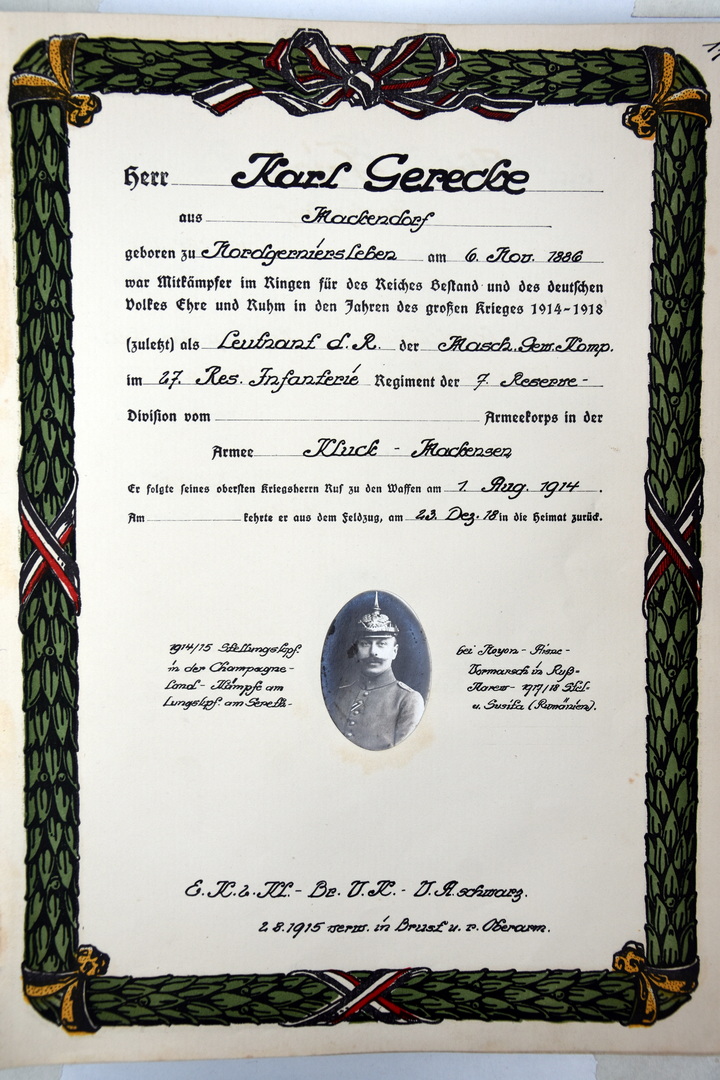 Herr Karl Gerecke
aus Mackendorf
geboren zu Nordgerniersleben am 6. Nov. 1886
war Mitkämpfer im Ringen für des Reiches Bestand und des deutschen
Volkes Ehre und Ruhm in den Jahren des großen Krieges 1914-1918
(zuletzt) als Leutnant d. R. der Masch. Gew. Komp.
im 27. Res. Infanterie Regiment der 7. Reserve-
Division vom Armeekorps in der
Armee Kluck - Mackensen
Er folgte seines obersten Kriegsherrn Ruf zu den Waffen am 1. Aug. 1914.
Am kehrte er aus dem Feldzug, am 23. Dez. 18 in die Heimat zurück.
1914/15 Stellungskpf. bei Noyon - Aisne -
in der Champagne - Vormarsch in Ruß=
land - Kämpfe am Narew - 1917/18 Stel-
lungskpf. am Sereth - u. Susita (Rumänien).
E. K. 2. Kl. - Br. V. K. - V. A. schwarz.
2.8.1915 verw. in Brust u. r. Oberarm.